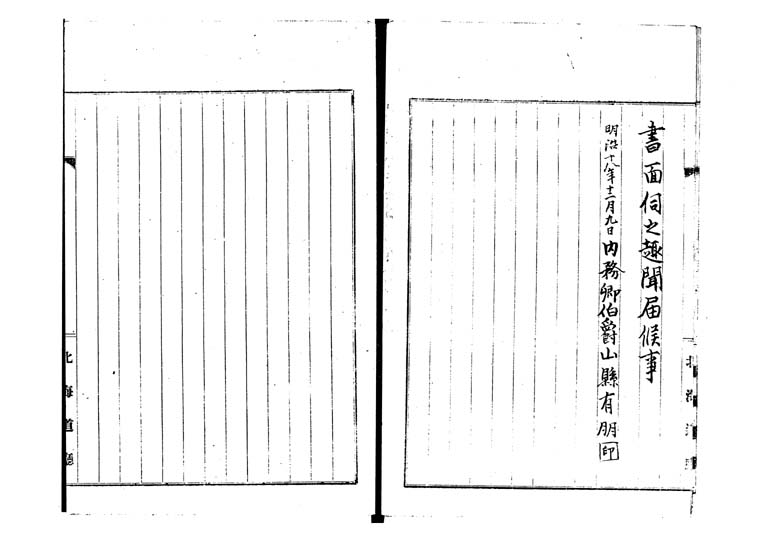 書面伺之趣聞届候事
明治十八年十二月九日内務卿伯爵山縣有朋印
北海道廳
北海道廳